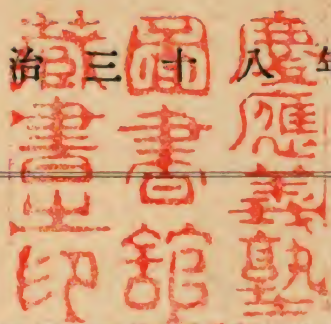 治三十八
慶應義塾
圖書館
藏書之印